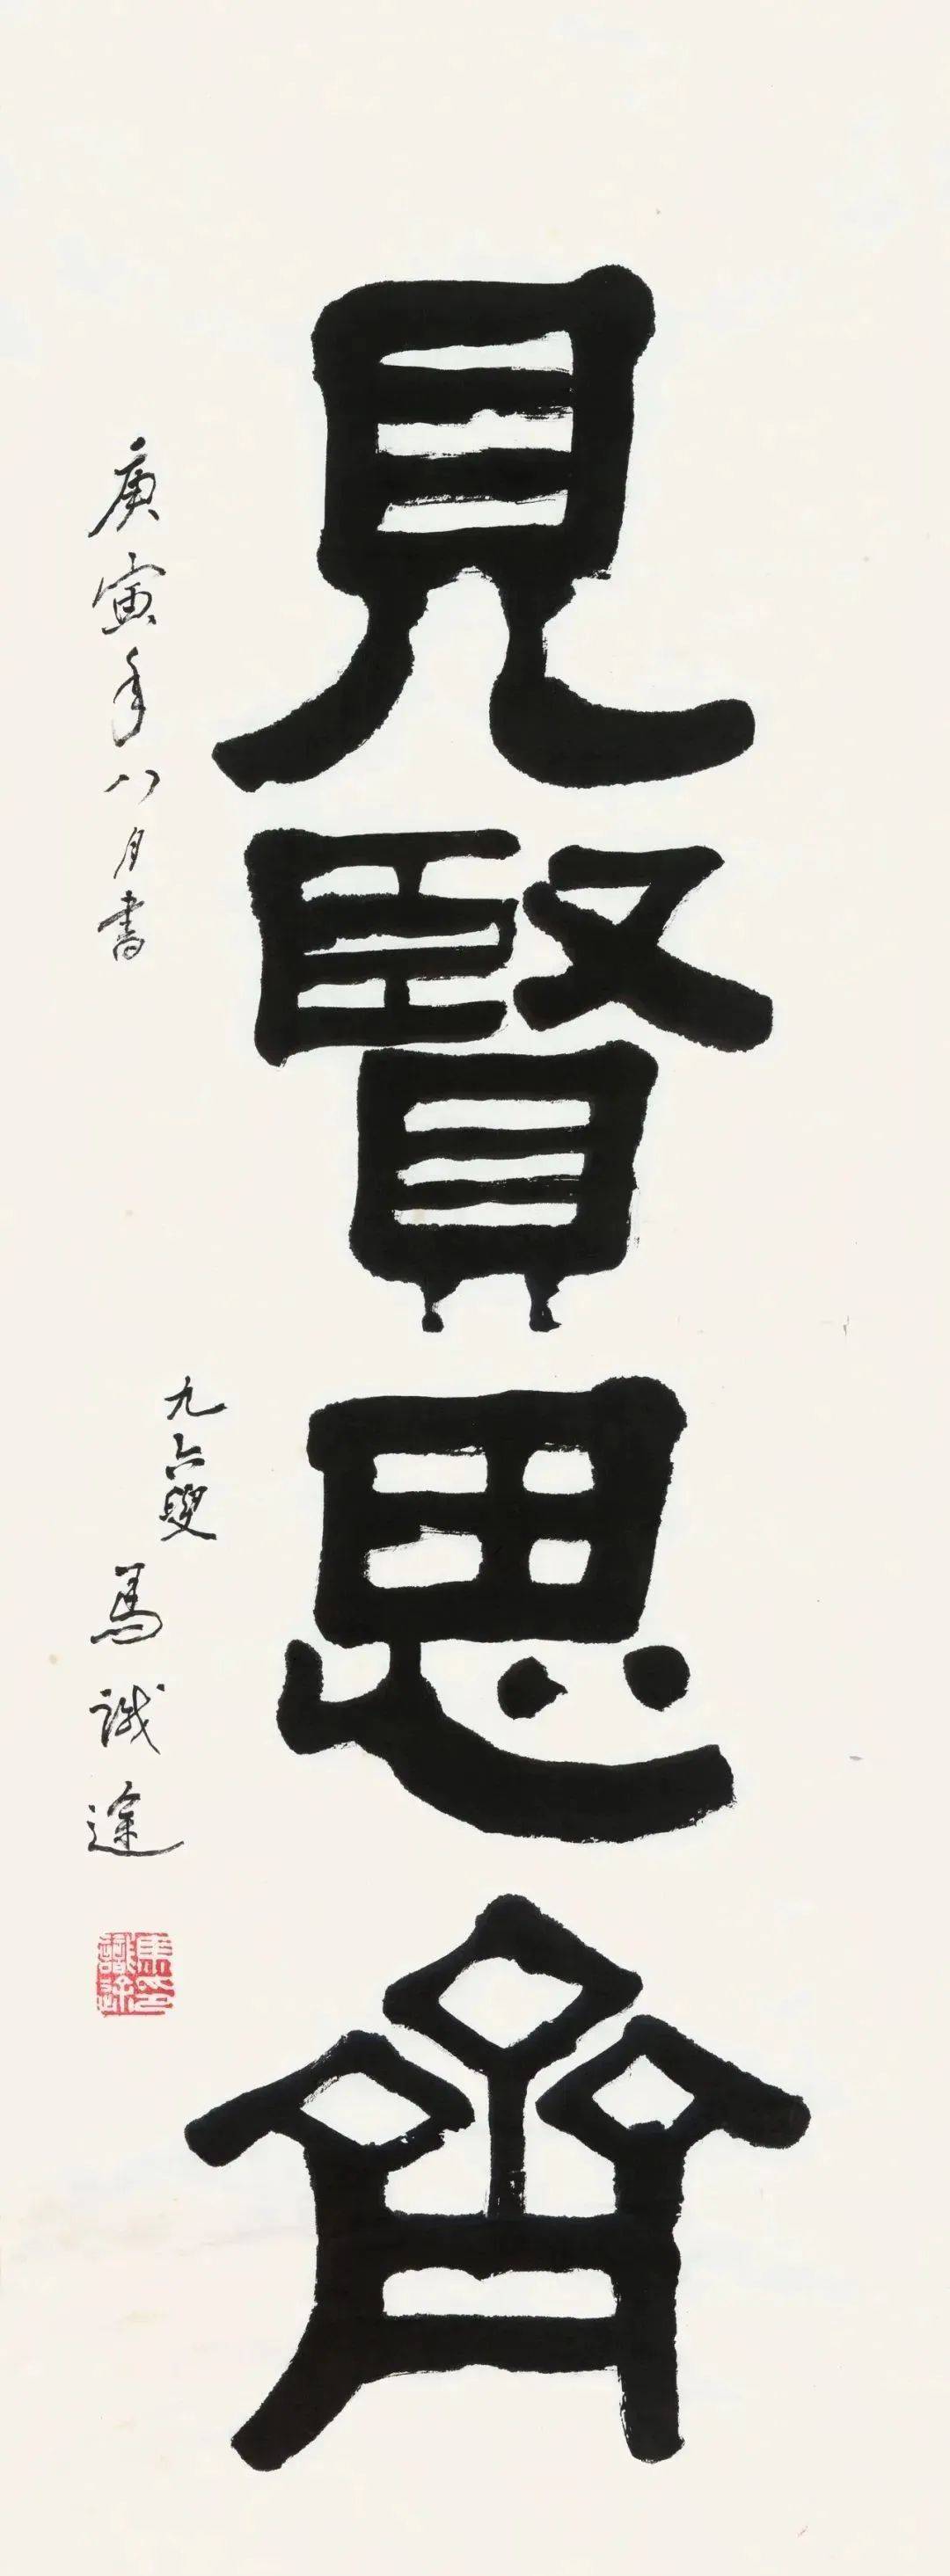 見賢思齊
庚寅年八月書
九六叟
馬識途
馬識途印